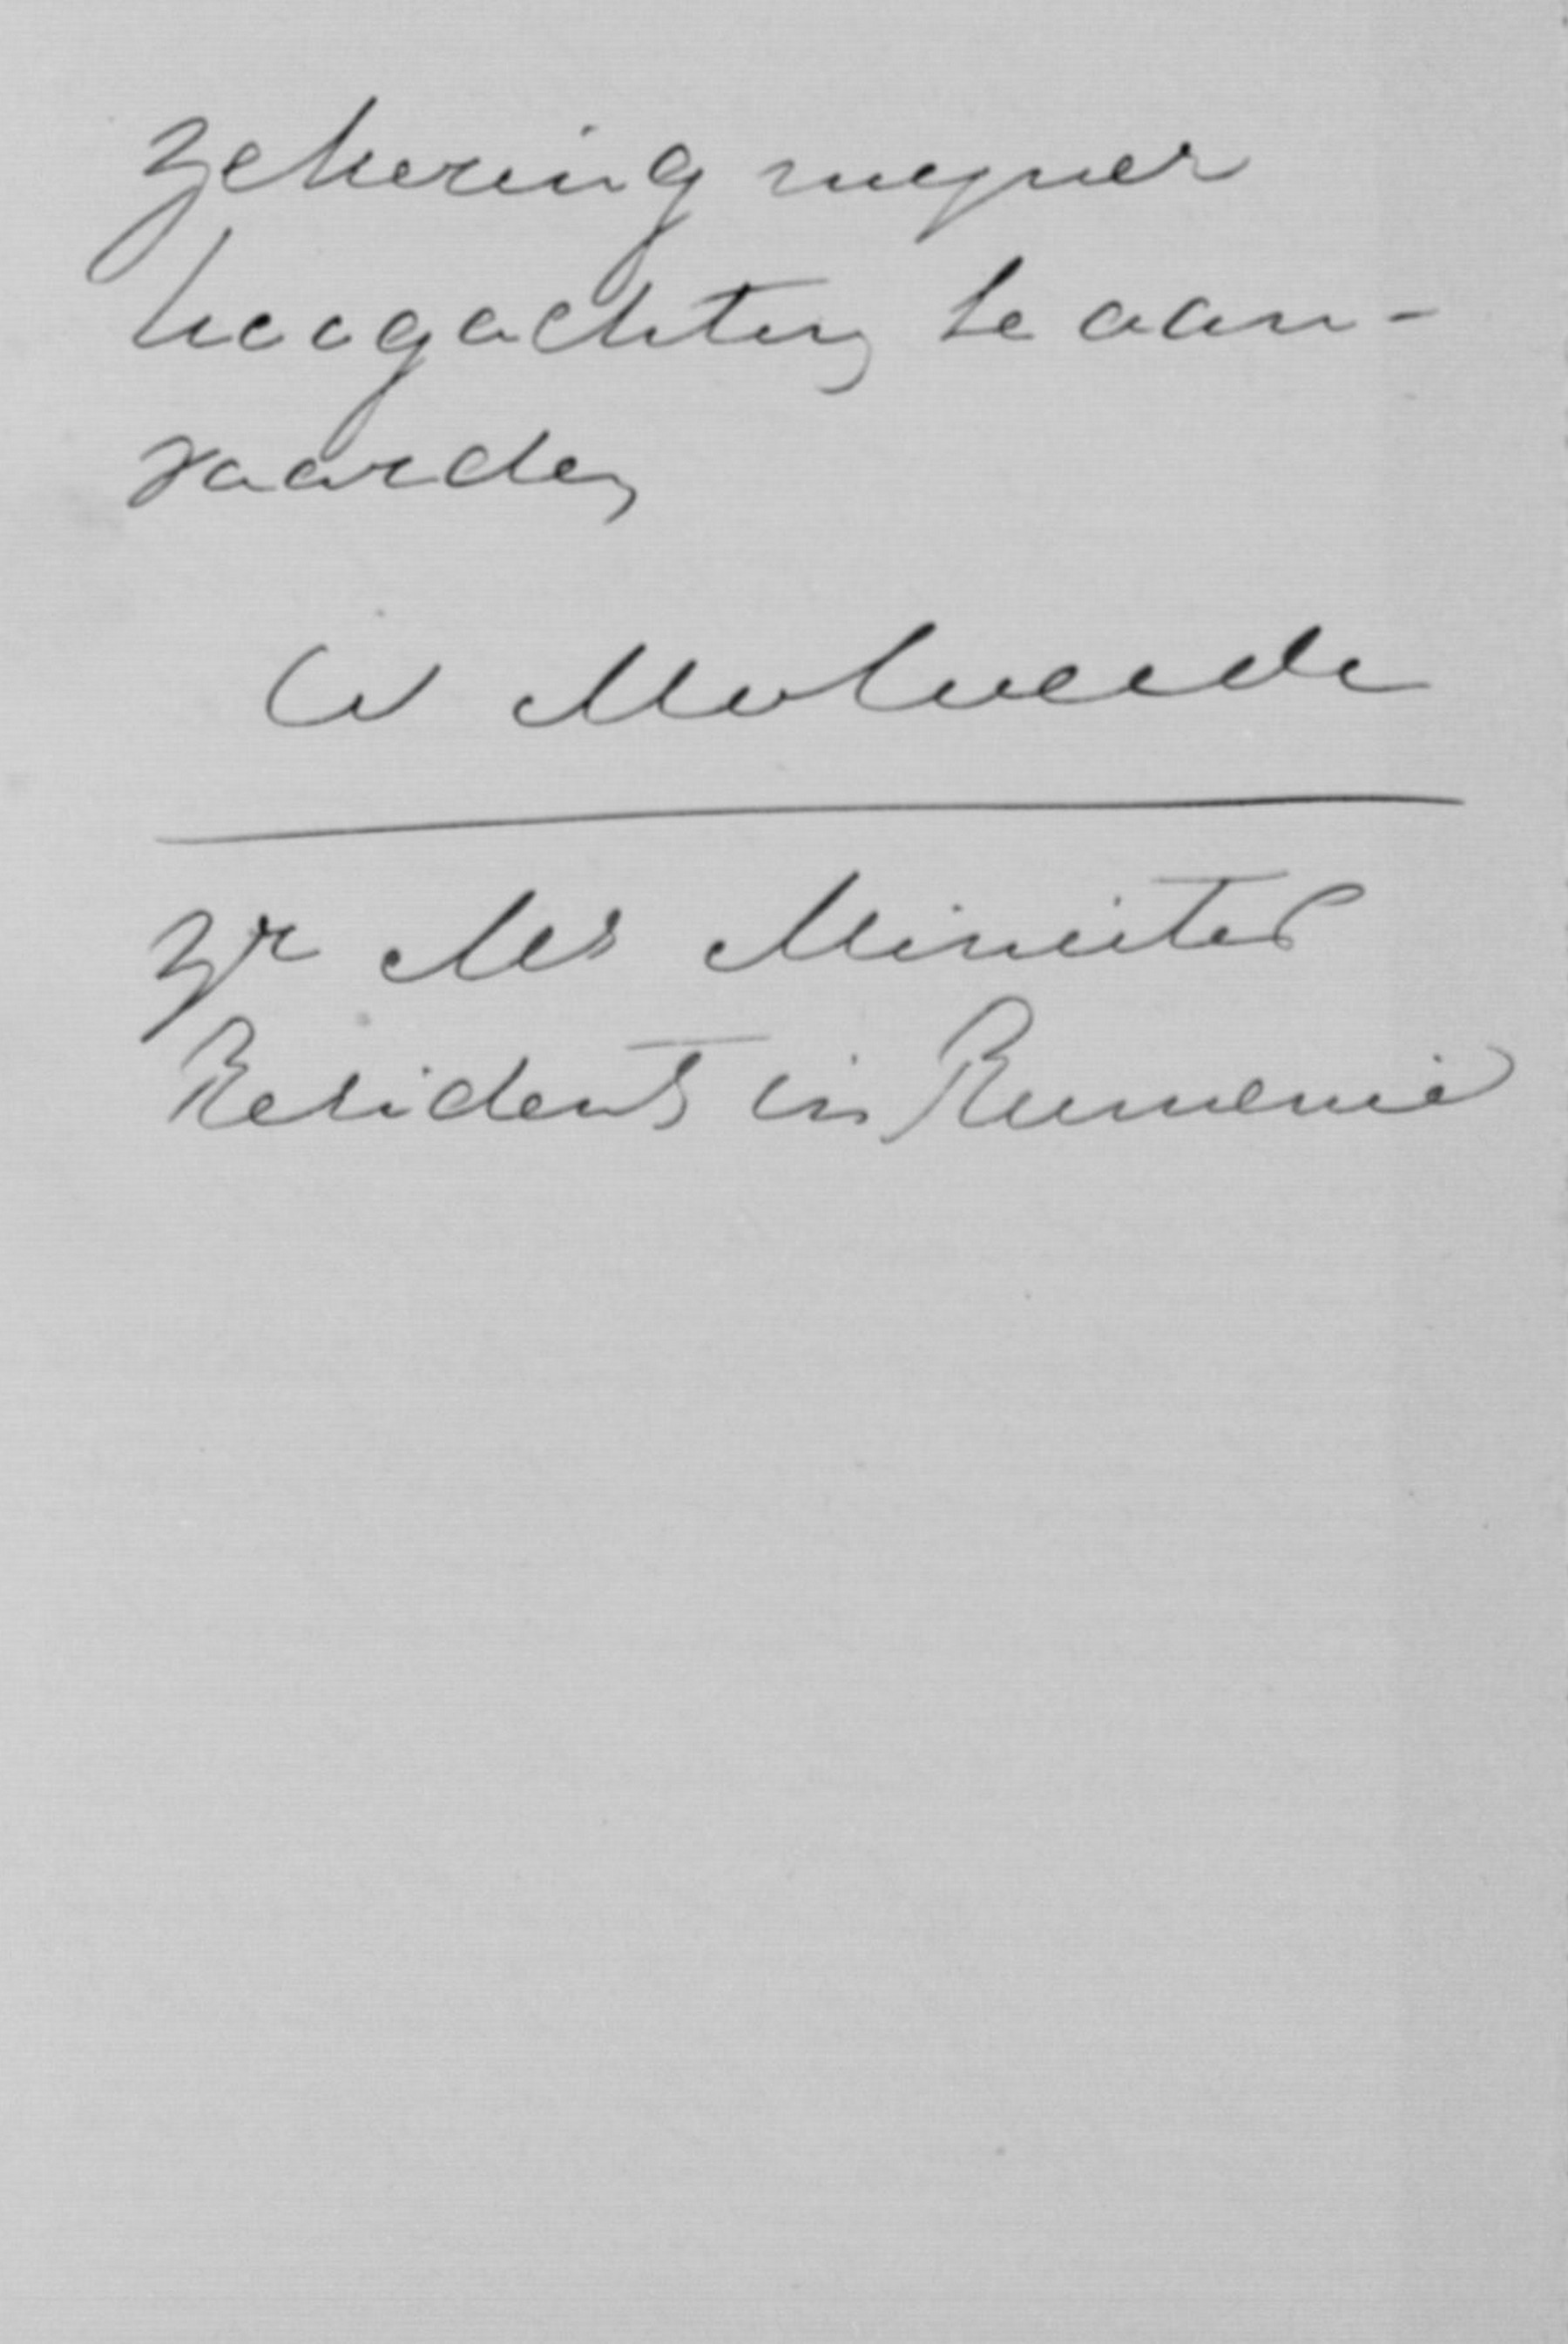 zekering mijner
hoogachting te aan-
vaarden
W
Zr Ms Minister
Resident in Rumenië